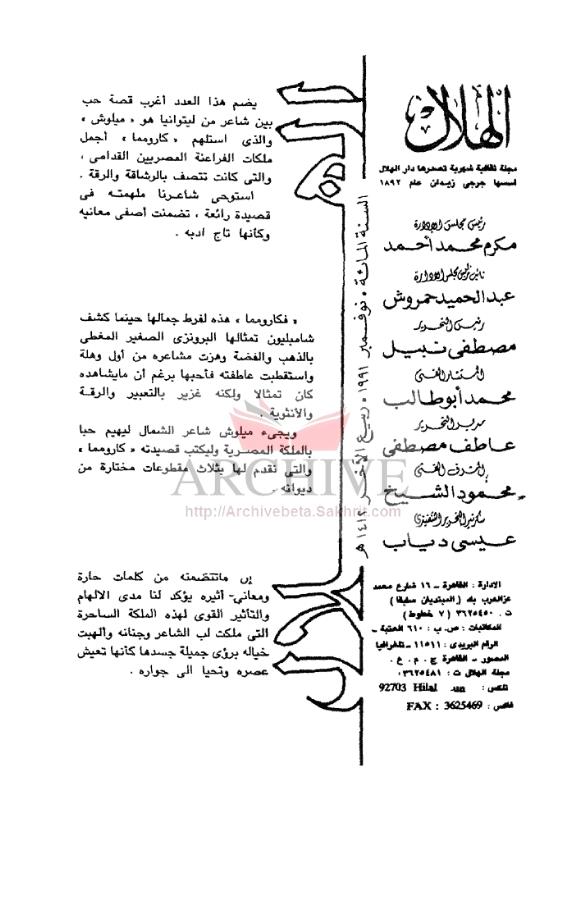 الهلال
مجلة ثقافية شهرية تصدرها دار الهلال
أسسها جرجى زيدان عام ١٨٩٢
رئيس مجلس الإدارة
مكرم محمد أحمد
نائب رئيس مجلس الإدارة
عبد الحميد حمروش
رئيس التحرير
مصطفى نبيل
المستشار الفنى
محمد أبو طالب
مدير التحرير
عاطف مصطفى
المشرف الفنى
محمود الشيخ
سكرتير التحرير التنفيذى
عيسى دياب
الادارة : القاهرة - ١٦ شارع محمد
عز العرب بك ( المبتديان سابقا )
ت : ٣٦٢٥٤٥٠ ( ٧ خطوط )
المكاتبات : ص . ب : ٦١٠ العتبة -
الرقم البريدى : ١١٥١١ - تلغرافيا
المصور - القاهرة ج . م . ع .
مجلة الهلال ت : ٣٦٢٥٤٨١
تلكس : 92703 Hilal un
فاكس : FAX : 3625469
السنة المائة • نوفمبر ١٩٩١ • ربيع الآخر ١٤١٢ هـ
الهلال
يضم هذا العدد أغرب قصة حب
بين شاعر من ليتوانيا هو « ميلوش »
والذى استلهم « كاروما » أجمل
ملكات الفراعنة المصريين القدامى ،
والتى كانت تتصف بالرشاقة والرقة .
استوحى شاعرنا ملهمته فى
قصيدة رائعة ، تضمنت أصفى معانيه
وكأنها تاج أدبه .
« فكاروما » هذه لفرط جمالها حينما كشف
شامبليون تمثالها البرونزى الصغير المغطى
بالذهب والفضة وهزت مشاعره من أول وهلة
واستقطبت عاطفته فأحبها برغم أن مايشاهده
كان تمثالا ولكنه غزير بالتعبير والرقة
والأنثوية .
ويجىء ميلوش شاعر الشمال ليهيم حبا
بالملكة المصرية وليكتب قصيدته « كاروما »
والتى نقدم لها بثلاث مقطوعات مختارة من
ديوانه .
إن ماتتضمنه من كلمات حارة
ومعانى أثيره يؤكد لنا مدى الالهام
والتأثير القوى لهذه الملكة الساحرة
التى ملكت لب الشاعر وجنانه وألهبت
خياله برؤى جميلة جسدها كأنها تعيش
عصره وتحيا الى جواره .
ARCHIVE
http://Archivebeta.Sakhrit.com